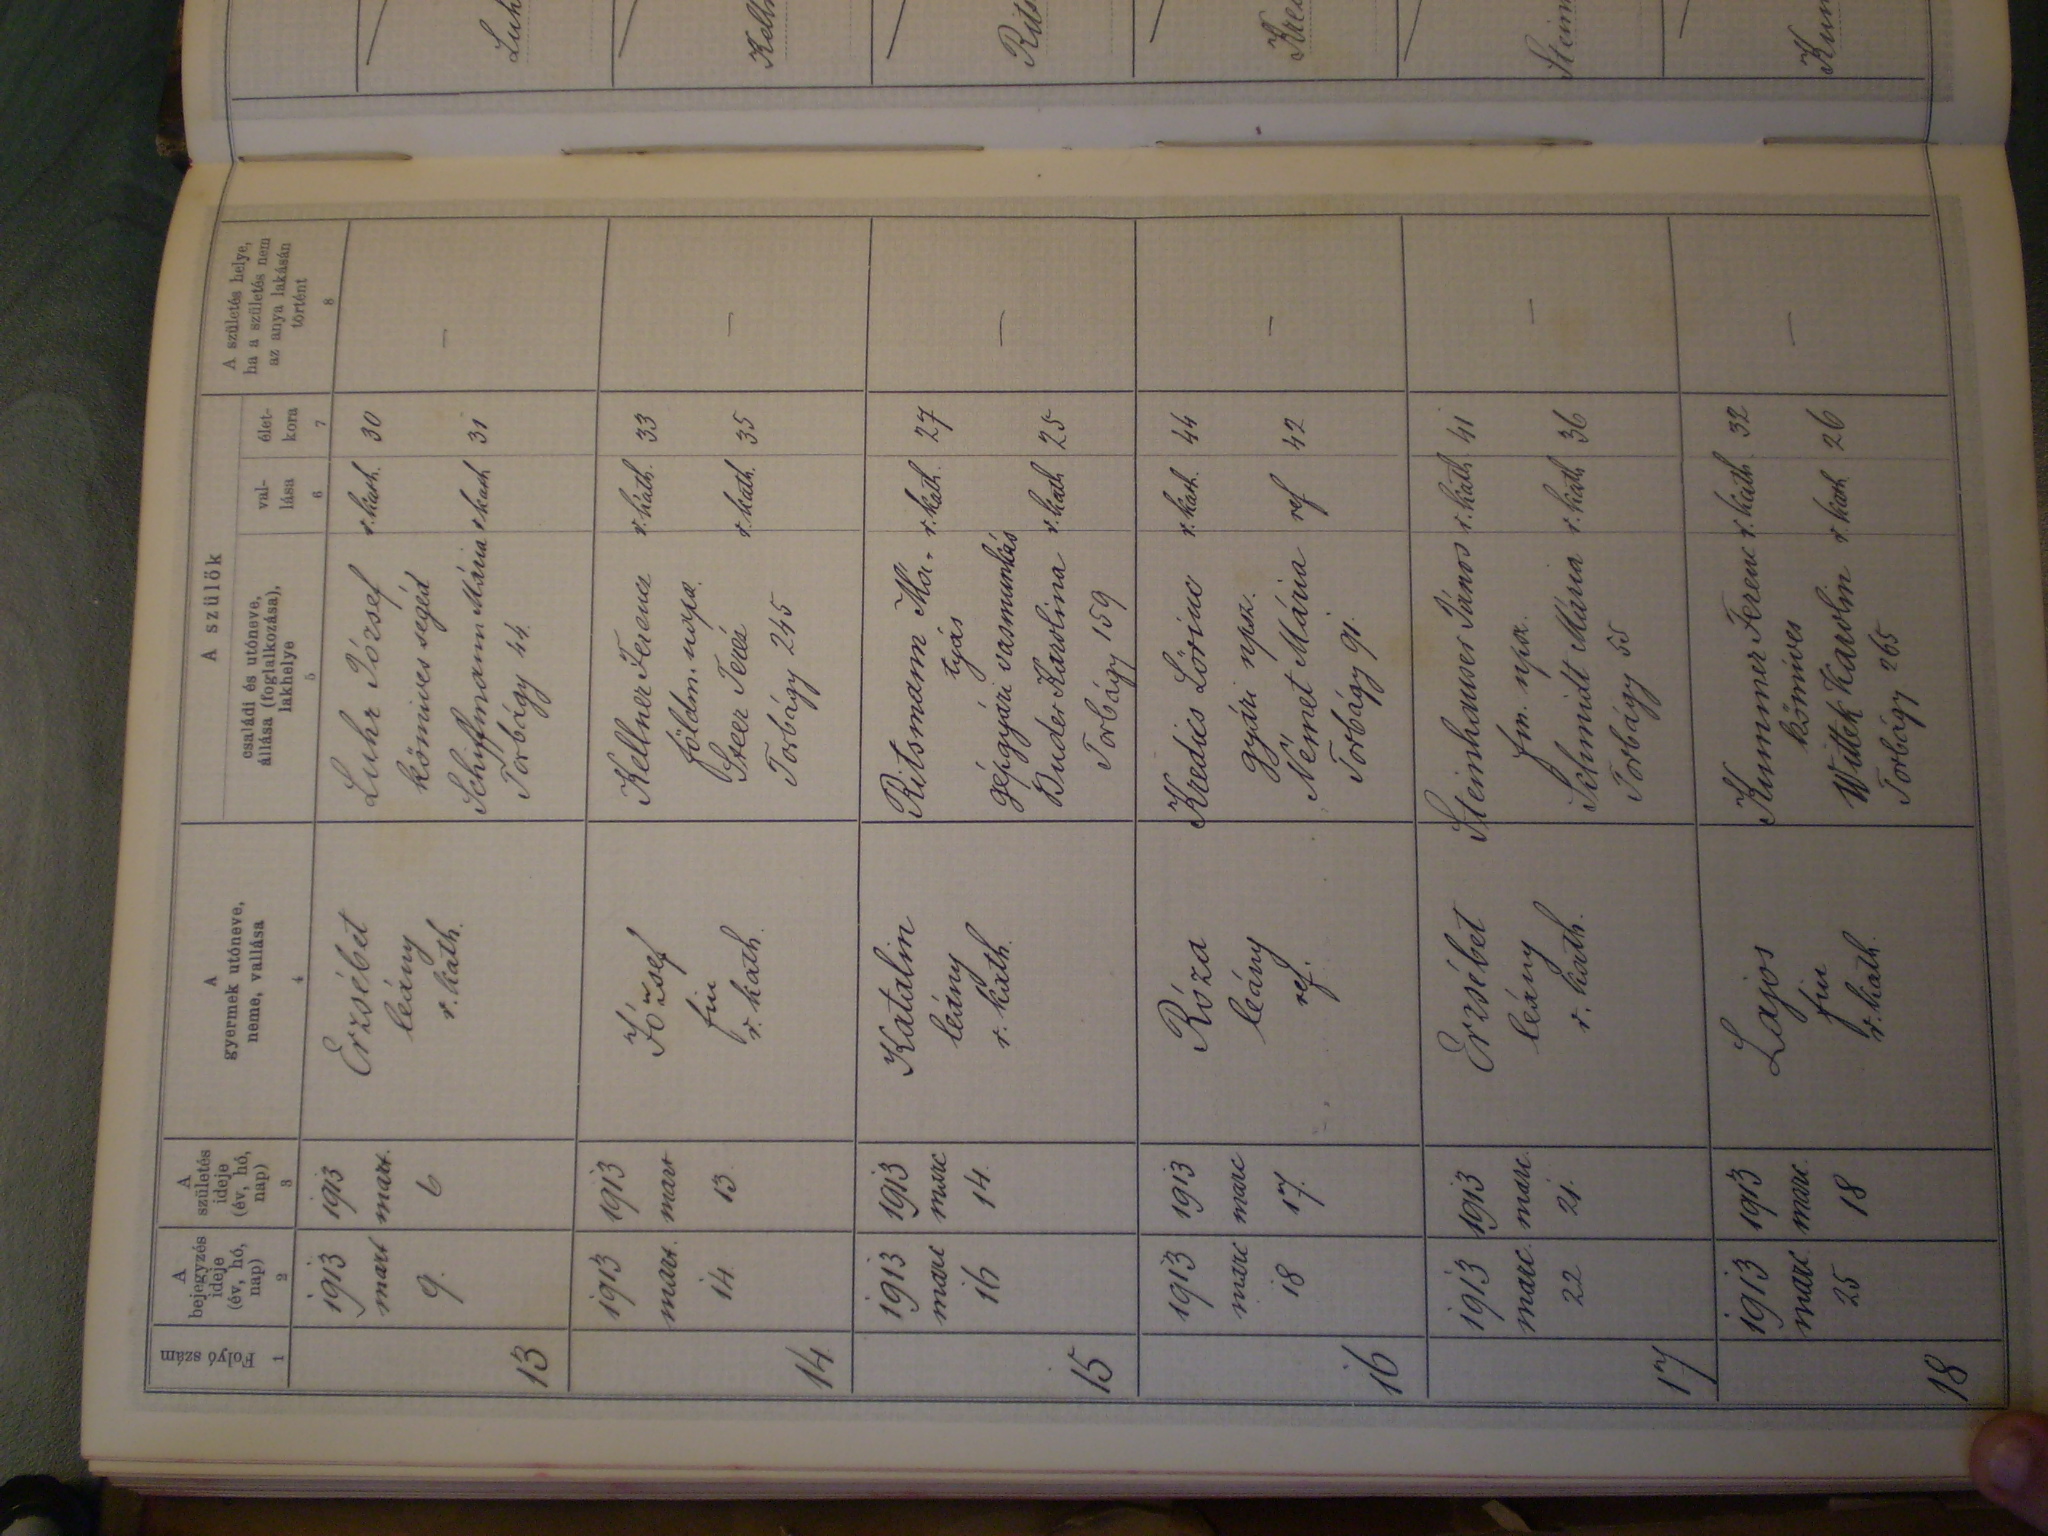 Folyó szám
1
A
bejegyzés
ideje
(év, hó,
nap)
2
A
születés
ideje
(év, hó,
nap)
3
A
gyermek utóneve,
neme, vallása
4
A szülők
családi és utóneve,
állása (foglalkozása),
lakhelye
5
val-
lása
6
élet-
kora
7
A születés helye,
ha a születés nem
az anya lakásán
történt
8
13
1913
mart
9.
1913
mart.
6
Erzsébet
leány
r. kath.
Luhr József r. kath. 30
kőmives segéd
Schiffmann Mária r kath 31
Torbágy 44.
—
14
1913
mart.
14.
1913
mart
13.
József
fiu
r. kath.
Kellner Ferencz r. kath. 33
földm. napsz.
Steer Teréz r. kath. 35
Torbágy 245
—
15
1913
marc
16
1913
marc
14.
Katalin
leány
r. kath.
Ritsmann Má- r. kath. 27
tyás
gépgyári vasmunkás
Buder Karolina r. kath 25
Torbágy 159
—
16
1913
marc
18
1913
marc
17.
Róza
leány
ref.
Kredics Lőrinc r. kath. 44
gyári npsz.
Német Mária ref 42
Torbágy 91.
—
17
1913
marc.
22
1913
marc.
21.
Erzsébet
leány
r. kath.
Steinhauser János r. kath. 41
fm. npsz.
Schmidt Mária r. kath 36
Torbágy 55
—
18
1913
marc.
25
1913
marc.
18
Lajos
fiu
r. kath.
Kummer Ferenc r. kath. 32
kőmives
Wittek Karolin r. kath 26
Torbágy 265
—
Luh
Kelln
Rits
Kred
Steinh
Kum